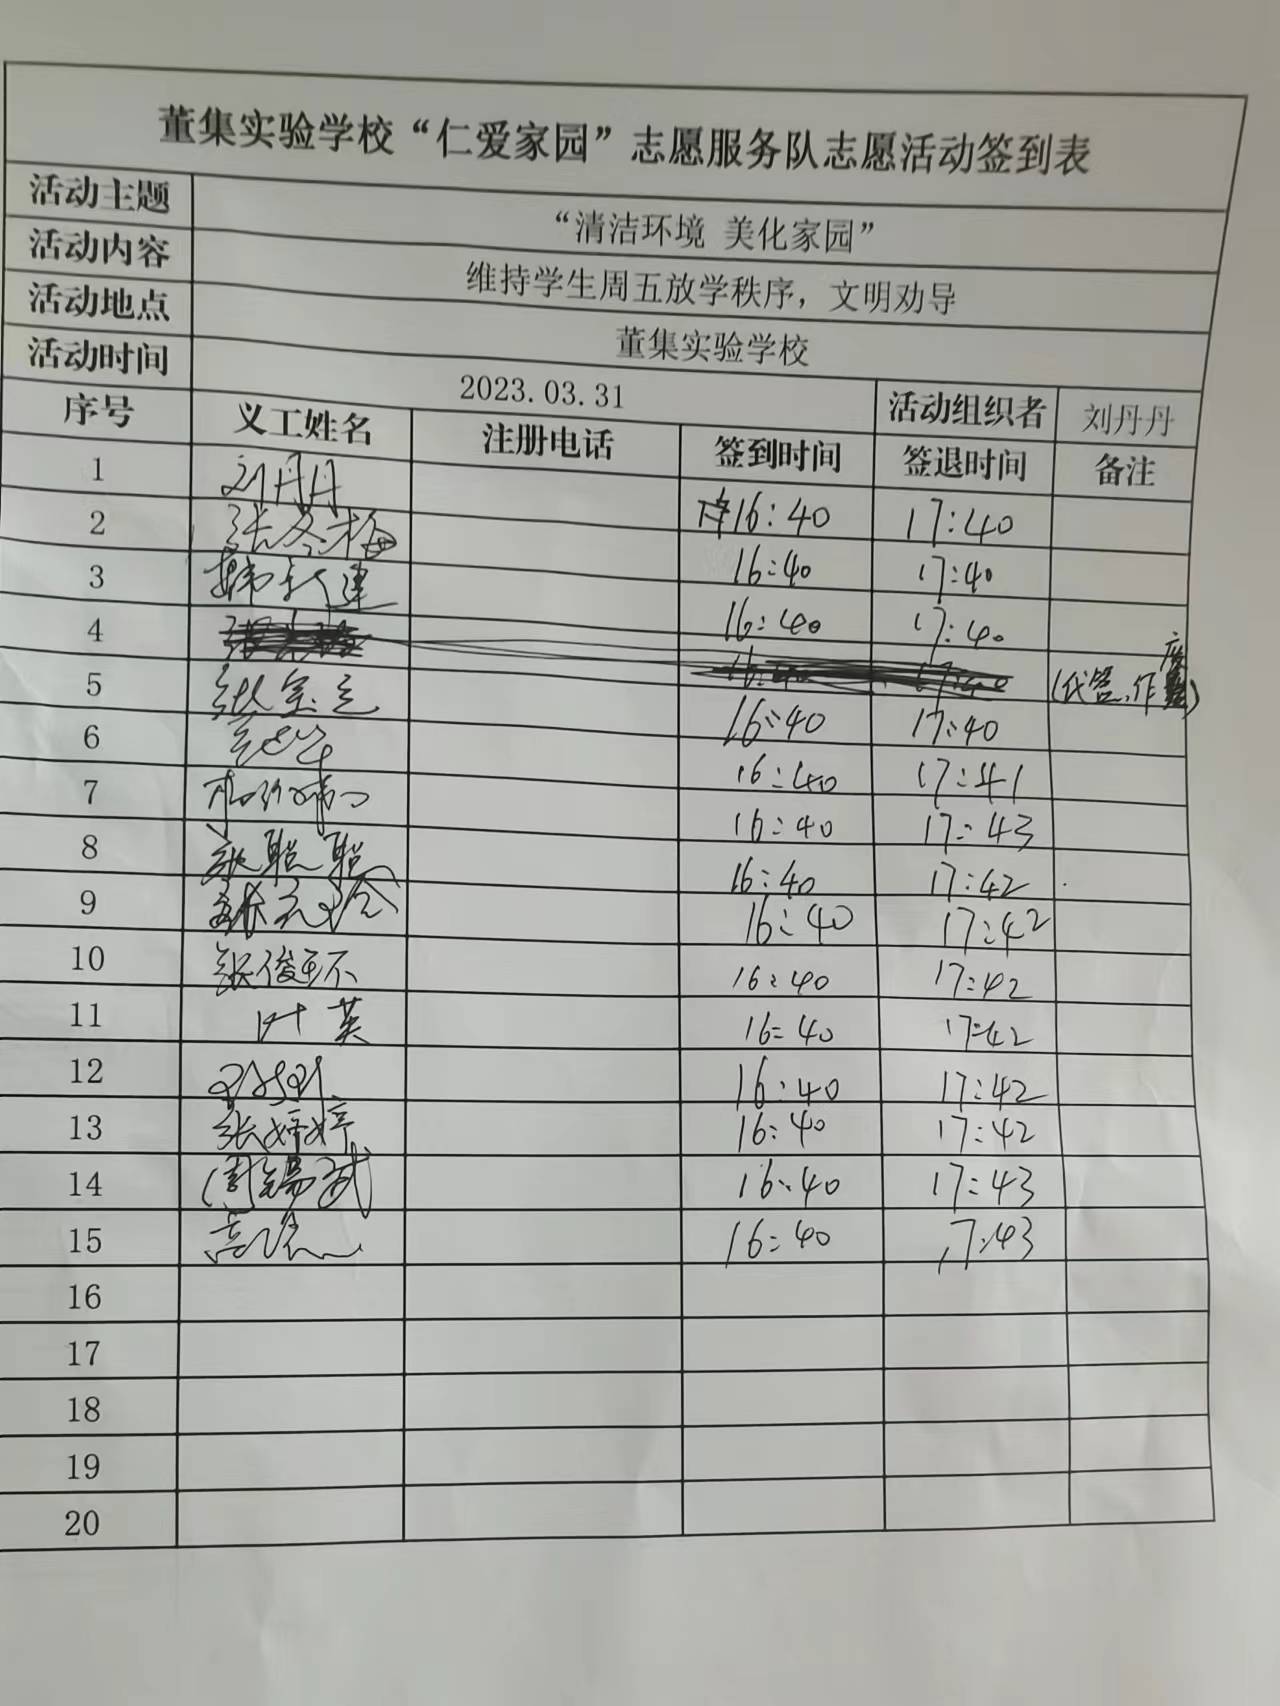 董集实验学校“仁爱家园”志愿服务队志愿活动签到表
活动主题 “清洁环境 美化家园”
活动内容 维持学生周五放学秩序，文明劝导
活动地点 董集实验学校
活动时间 2023.03.31 活动组织者 刘丹丹
序号 义工姓名 注册电话 签到时间 签退时间 备注
1 刘丹丹 16:40 17:40
2 张冬梅 16:40 17:40
3 16:40 17:40
4 16:40 17:40 (代签、作废)
5 张宝之 16:40 17:40
6 16:40 17:41
7 16:40 17:43
8 聪聪 16:40 17:42
9 16:40 17:42
10 张俊 16:40 17:42
11 叶英 16:40 17:42
12 16:40 17:42
13 张婷婷 16:40 17:42
14 周锡武 16:40 17:43
15 16:40 17:43
16
17
18
19
20